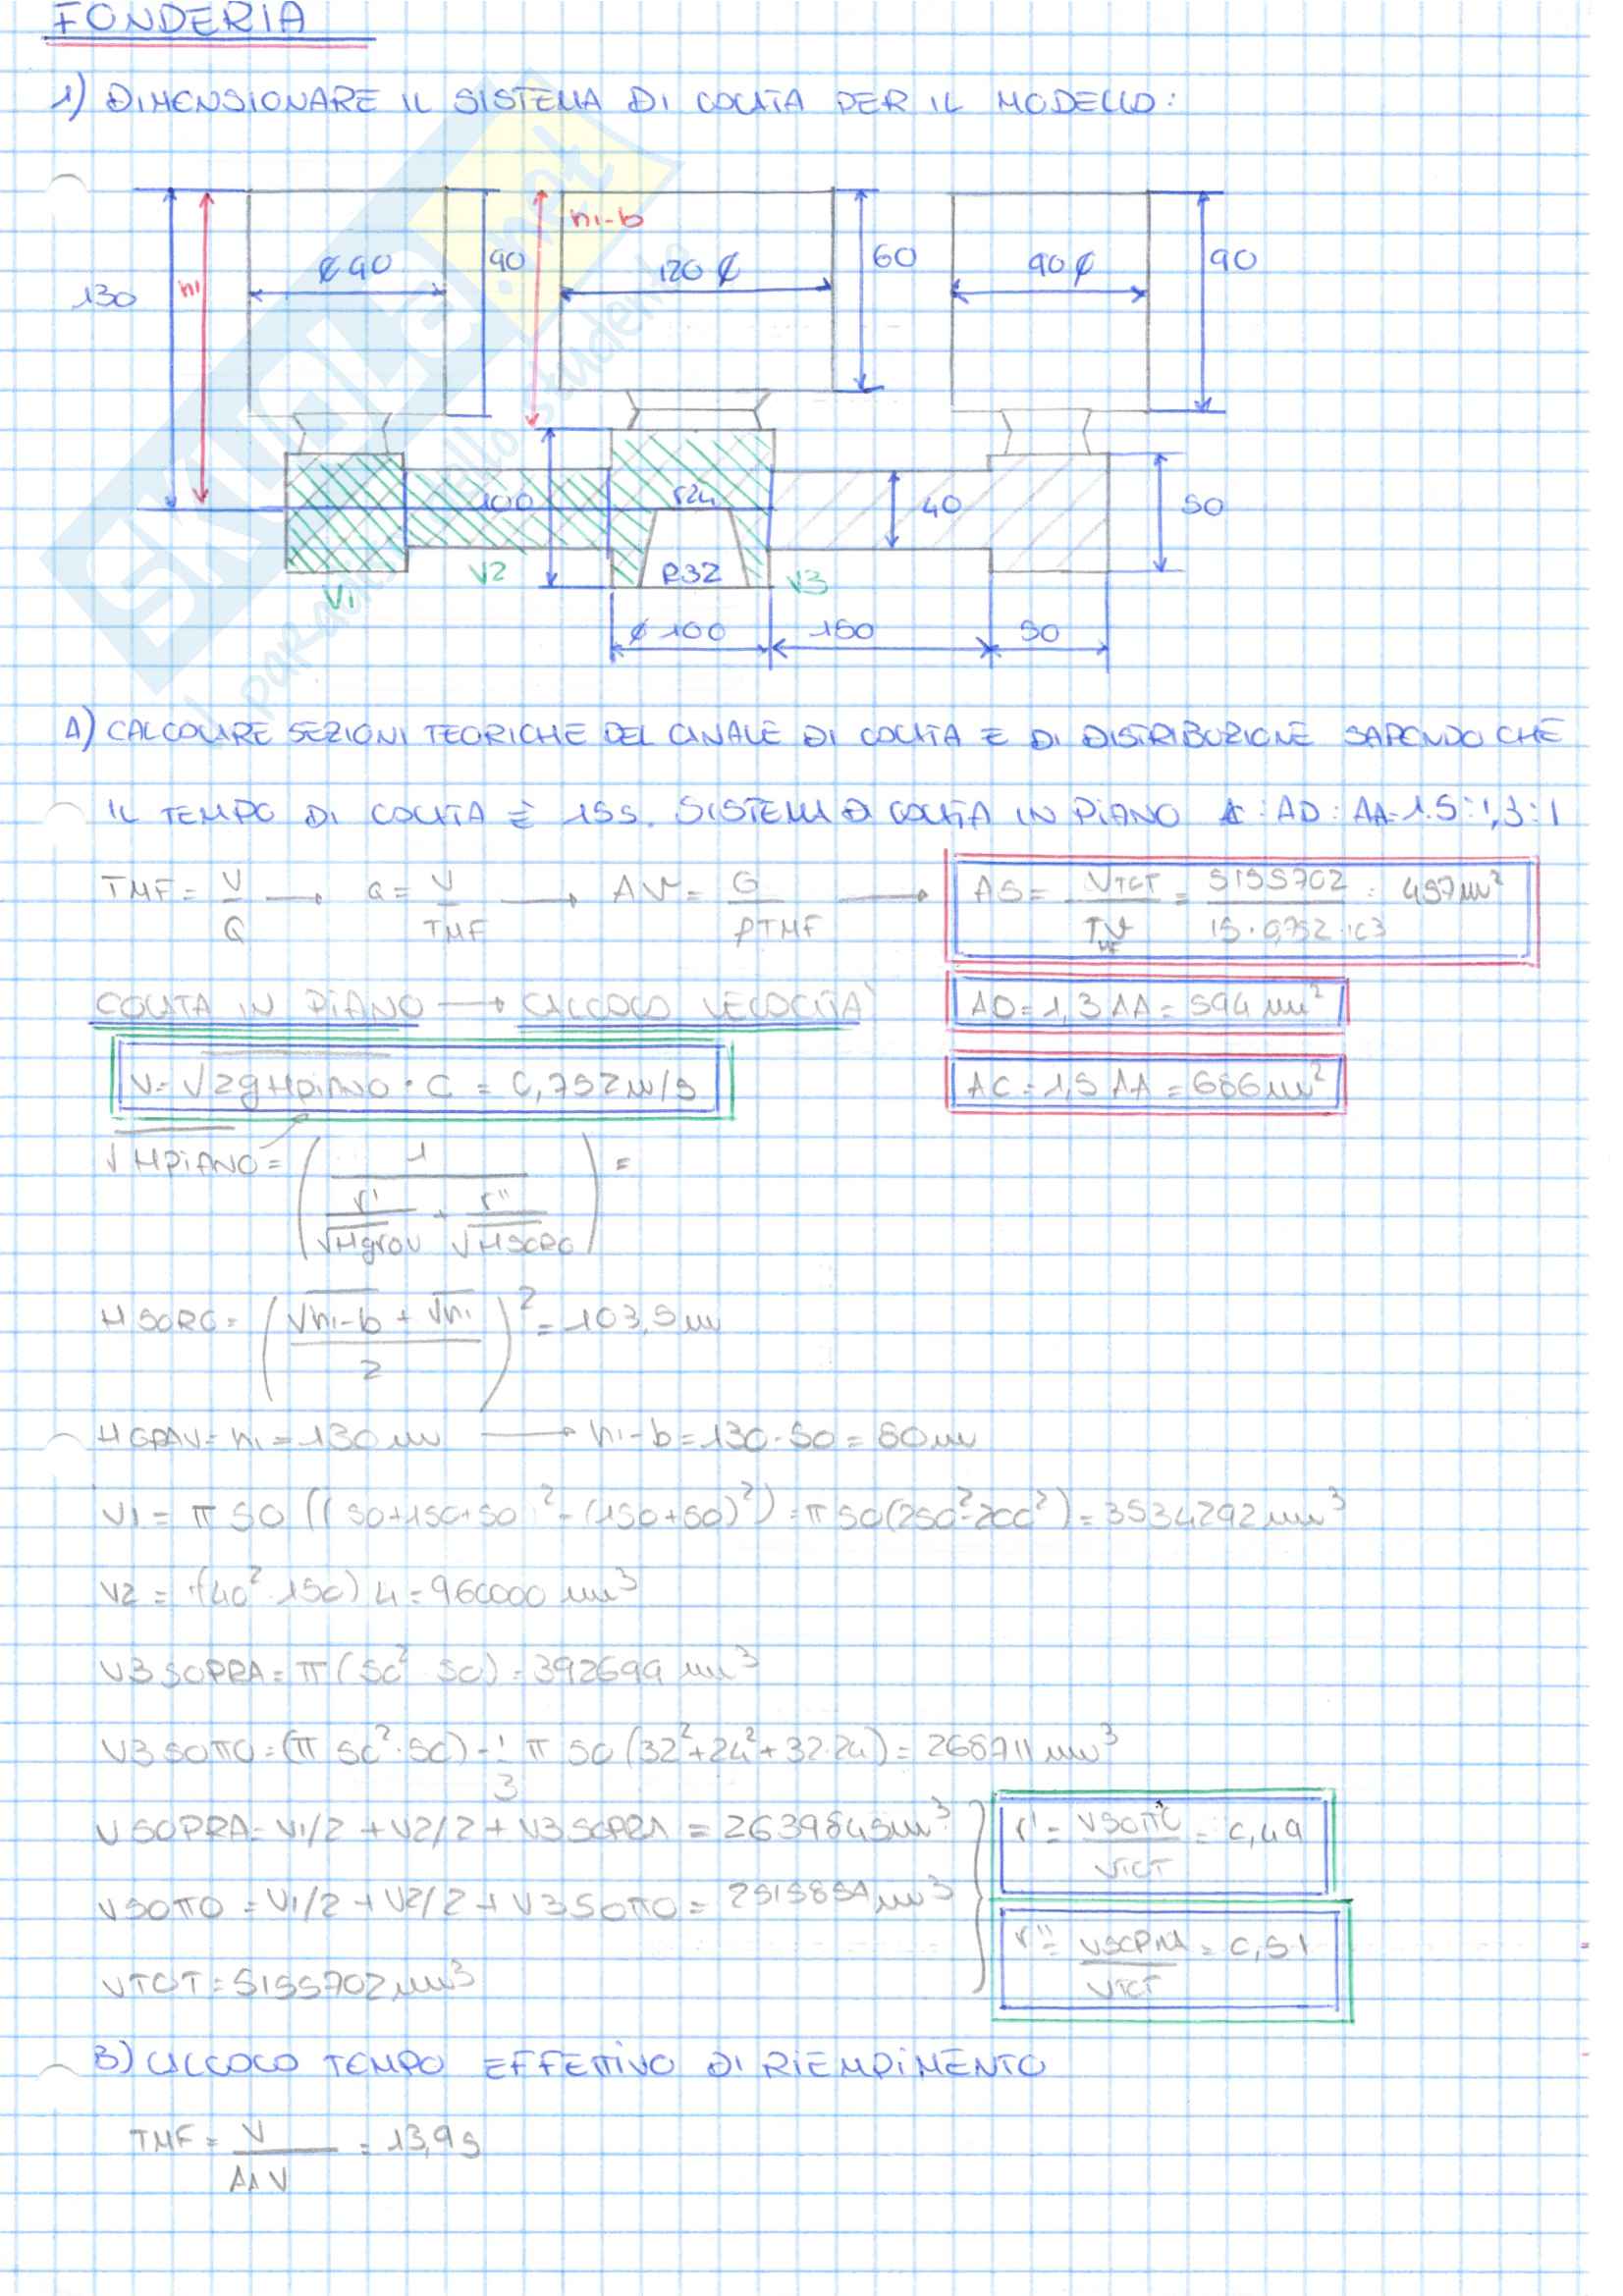 FONDERIA
1) DIMENSIONARE IL SISTEMA DI COLATA PER IL MODELLO:
130
h1
¢ 90
90
h1-b
120 ¢
60
90 ¢
90
100
r24
R32
40
50
V1
V2
V3
¢ 100
150
50
A) CALCOLARE SEZIONI TEORICHE DEL CANALE DI COLATA E DI DISTRIBUZIONE SAPENDO CHE
IL TEMPO DI COLATA È 15S. SISTEMA DI COLATA IN PIANO AC : AD : AA = 1.5 : 1,3 : 1
TMF = V/Q → Q = V/TMF → AV = G/ρTMF → AS = VTOT/TMFV = 5155702/15·0,752·103 = 457mm²
COLATA IN PIANO → CALCOLO VELOCITÀ
AD = 1,3 AA = 594 mm²
V = √2gHPIANO · C = 0,752 m/s
AC = 1,5 AA = 686mm²
√HPIANO = (1/(r'/√Hgrav + r''/√HSORG)) =
HSORG = ((√h1-b + √h1)/2)² = 103,5 mm
HGRAV = h1 = 130 mm → h1-b = 130-50 = 80mm
V1 = π 50 ((50+150+50)² - (150+50)²) = π 50(250²-200²) = 3534292 mm³
V2 = (40²·150) 4 = 960000 mm³
V3 SOPRA = π (50² 50) = 392699 mm³
V3 SOTTO = (π 50²·50) - 1/3 π 50 (32²+24²+32·24) = 268711 mm³
V SOPRA = V1/2 + V2/2 + V3 SOPRA = 2639845mm³
r' = VSOTTO/VTOT = 0,49
V SOTTO = V1/2 + V2/2 + V3 SOTTO = 2515857mm³
r'' = VSOPRA/VTOT = 0,51
VTOT = 5155702mm³
B) CALCOLO TEMPO EFFETTIVO DI RIEMPIMENTO
TMF = V/AAV = 13,9s
SKUOLA.net